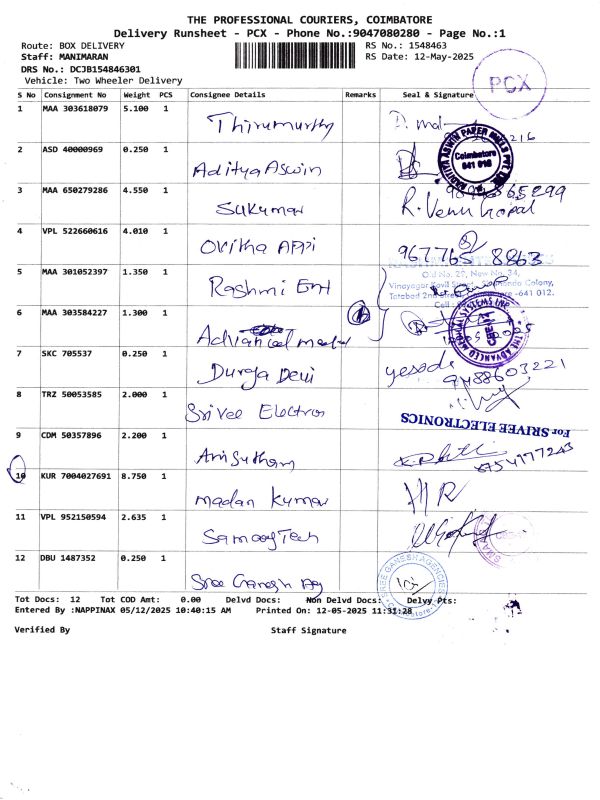 THE PROFESSIONAL COURIERS, COIMBATORE
Delivery Runsheet - PCX - Phone No.:9047080280 - Page No.:1
Route: BOX DELIVERY RS No.: 1548463
Staff: MANIMARAN RS Date: 12-May-2025
DRS No.: DCJB154846301
Vehicle: Two Wheeler Delivery
PCX
S No Consignment No Weight PCS Consignee Details Remarks Seal & Signature
1 MAA 303618079 5.100 1 Thirumurthy
2 ASD 40000969 0.250 1 Aditya Aswin
Coimbatore
641 018
3 MAA 650279286 4.550 1 Sukumar R. Venu Gopal
4 VPL 522660616 4.010 1 96776S 8863
5 MAA 301052397 1.350 1 Rashmi Ent
Old No. 27, New No. 34,
6 MAA 303584227 1.300 1 Advanced Medical
7 SKC 705537 0.250 1 Durga Devi
9488603221
8 TRZ 50053585 2.000 1 Srivee Electron
For SRIVEE ELECTRONICS
9 CDM 50357896 2.200 1
10 KUR 7004027691 8.750 1 madan kumar
11 VPL 952150594 2.635 1
12 DBU 1487352 0.250 1 Sree Ganesh Ag
SREE GANESH AGENCIES
Tot Docs: 12 Tot COD Amt: 0.00 Delvd Docs: Non Delvd Docs: Delvy Pts:
Entered By :NAPPINAX 05/12/2025 10:40:15 AM Printed On: 12-05-2025 11:31:28
Verified By Staff Signature